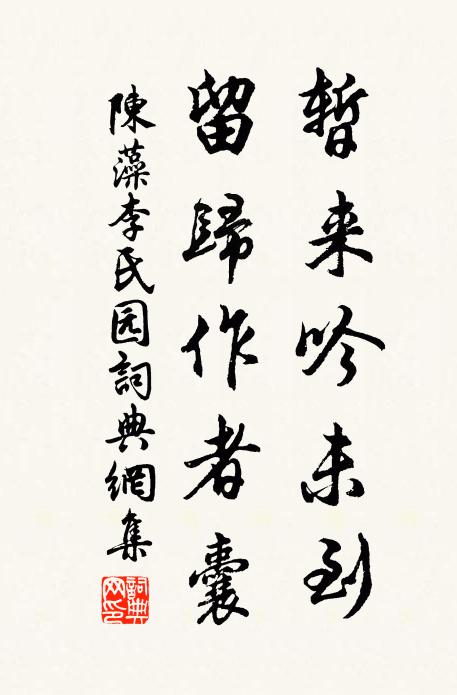 暫来吟未到
留歸作者囊
陳藻李氏园詞典網集
詞典網印